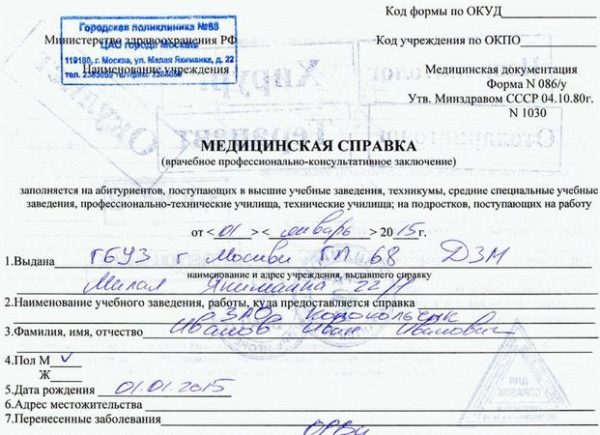 Код формы по ОКУД
Городская поликлиника №68
ЦАО города Москвы
119180, г. Москва, ул. Малая Якиманка, д. 22
Министерство здравоохранения РФ
Код учреждения по ОКПО
Наименование учреждения
Медицинская документация
Форма N 086/у
Утв. Минздравом СССР 04.10.80г.
N 1030
Окулист
Хирург
Терапевт
МЕДИЦИНСКАЯ СПРАВКА
(врачебное профессионально-консультативное заключение)
заполняется на абитуриентов, поступающих в высшие учебные заведения, техникумы, средние специальные учебные
заведения, профессионально-технические училища, технические училища; на подростков, поступающих на работу
от <01> <январь> 2015г.
1.Выдана ГБУЗ г Москвы ГП 68 ДЗМ
наименование и адрес учреждения, выдавшего справку
Малая Якиманка 22
2.Наименование учебного заведения, работы, куда предоставляется справка
ЗАО Колокольчик
3.Фамилия, имя, отчество Иванов Иван Иванович
4.Пол М
Ж
5.Дата рождения 01.01.2015
6.Адрес местожительства
7.Перенесенные заболевания
ОРВИ
ДЛЯ
СПРАВОК